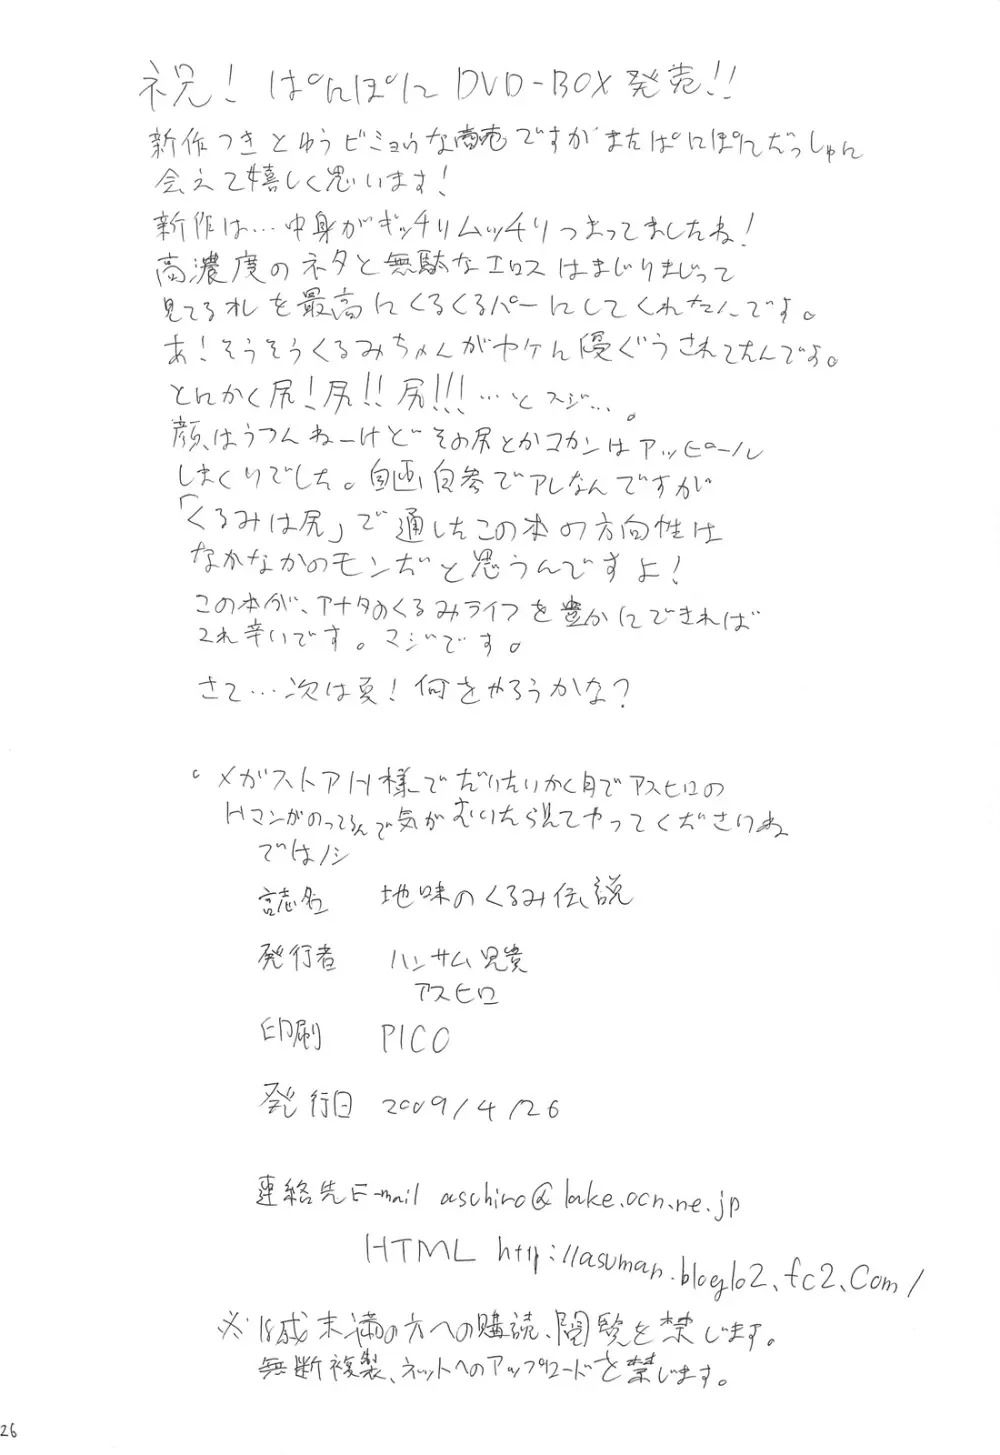 祝! ぱにぽに DVD-BOX 発売!!
新作つきとゆうビミョウな商売ですがまたぱにぽにだっしゅに
会えて嬉しく思います!
新作は…中身がギッチリムッチリつまってましたね!
高濃度のネタと無駄なエロスはまじりまじって
見てる我を最高にくるくるパーにしてくれたんです。
あ!そうそうくるみちゃんがヤケに優ぐうされてたんですよ。
とにかく尻!尻!! 尻!!! …とスジ…。
顔はうつんねーけどその尻とかコカンはアッピール
しまくりでした。自画自参でアレなんですが
「くるみは尻」で通したこの本の方向性は
なかなかのモンだと思うんですよ!
この本が、アナタのくるみライフを豊かにできれば
これ幸いです。マジです。
さて…次は夏! 何をやろうかな?
。メガストアH様でだいたいかく月でアスヒロの
Hマンガのってるんで気がむいたら見てやってくださいね
ではノシ
誌名 地味のくるみ伝説
発行者 ハンサム兄貴
アスヒロ
印刷 PICO
発行日 2009/4/26
連絡先 E-mail aschiro@lake.ocn.ne.jp
HTML http://asuman.blog102.fc2.com/
※18歳未満の方への購読、閲覧を禁じます。
無断複製、ネットへのアップロードを禁じます。
26